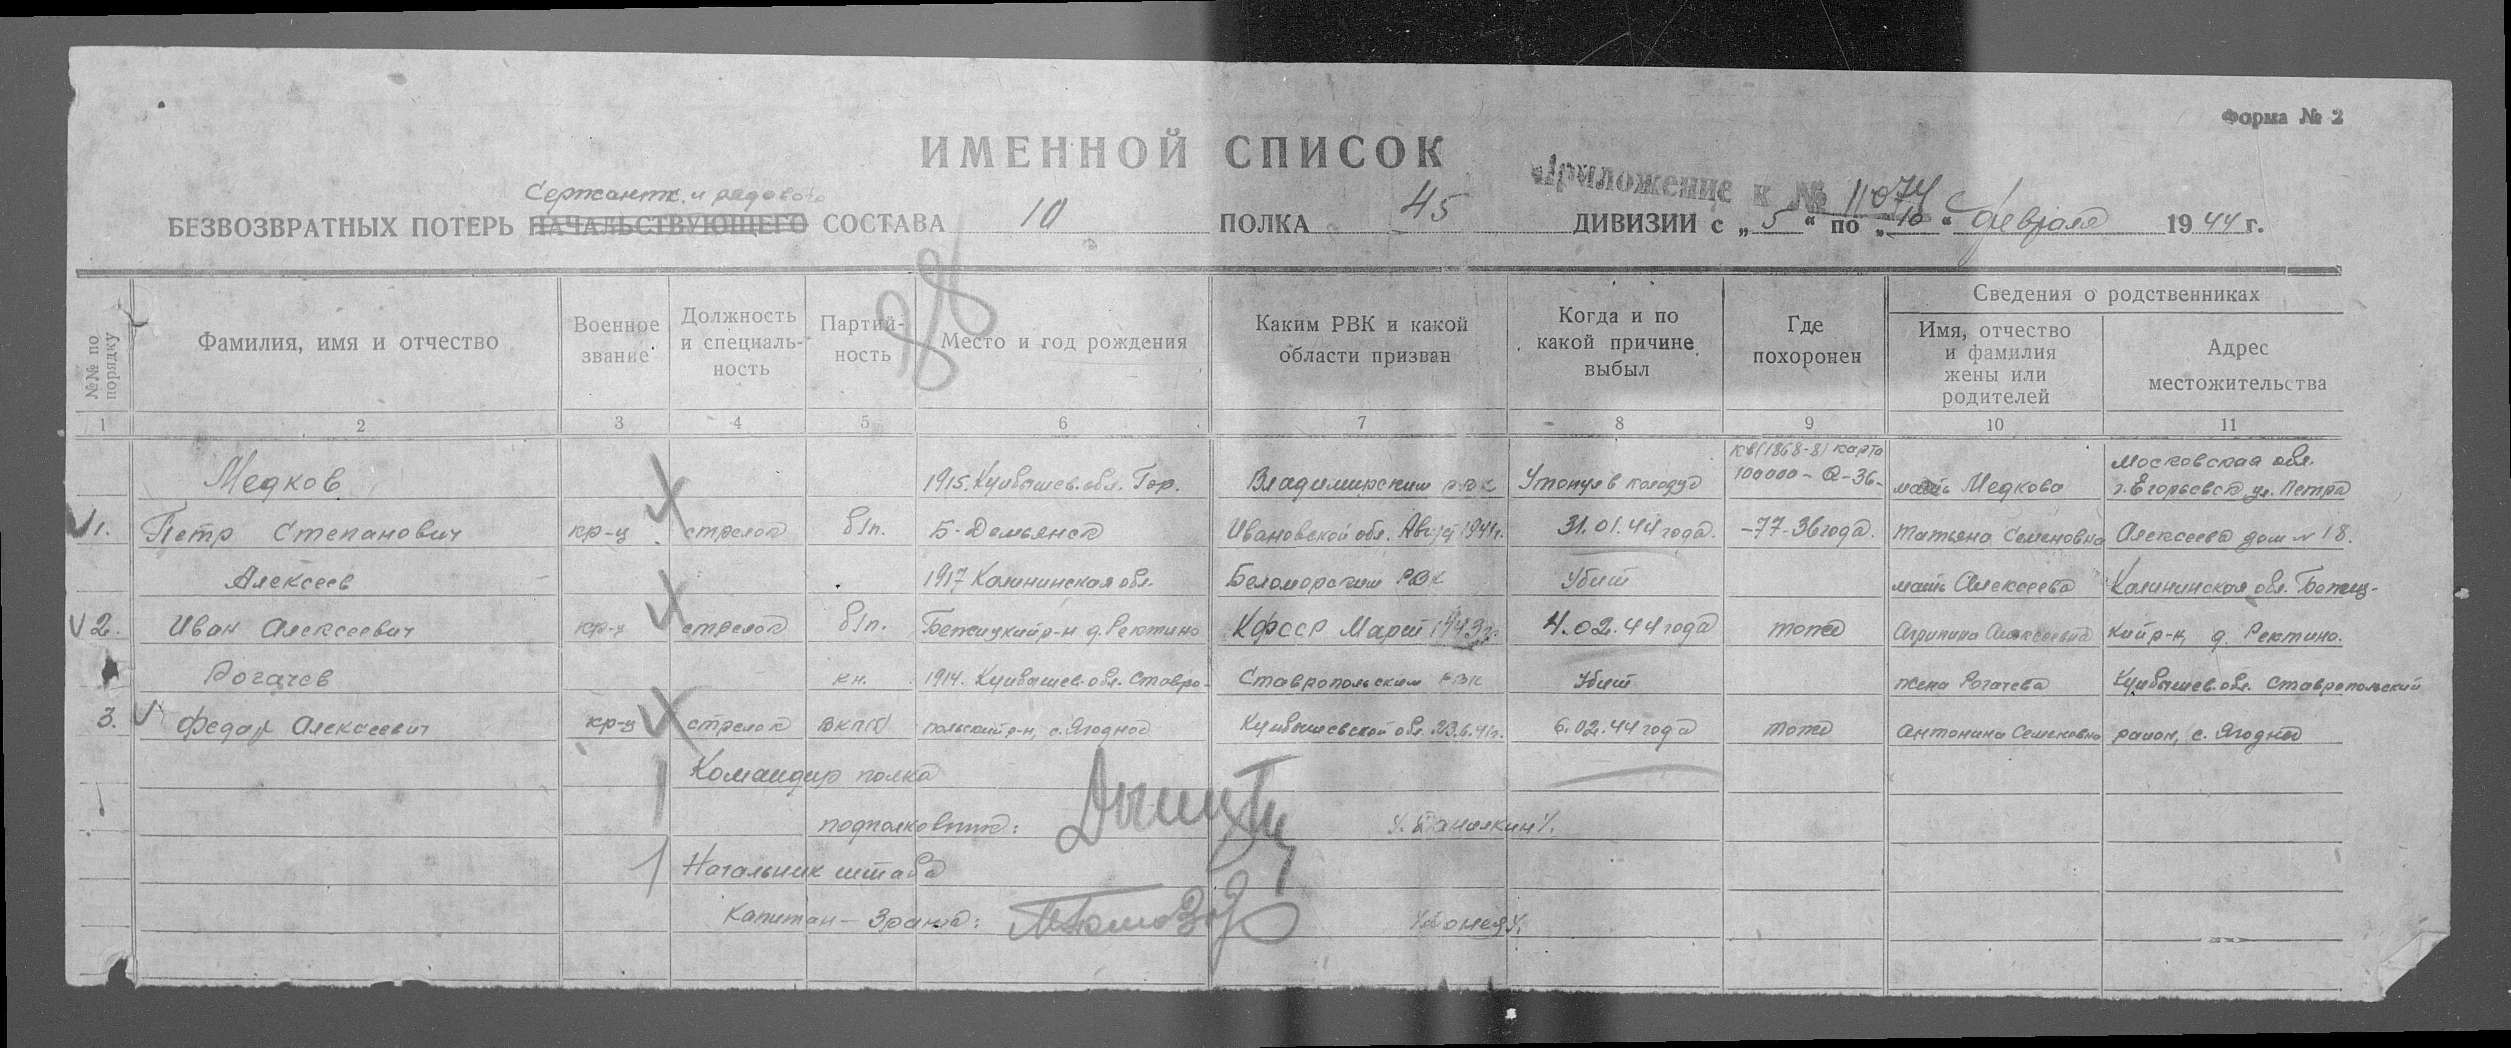 Форма № 2
ИМЕННОЙ СПИСОК
Приложение к № 11074 с
Сержантск. и рядового
БЕЗВОЗВРАТНЫХ ПОТЕРЬ НАЧАЛЬСТВУЮЩЕГО СОСТАВА 10 ПОЛКА 45 ДИВИЗИИ с „5“ по „10“ февраля 1944 г.
98
№№ по порядку
Фамилия, имя и отчество
Военное звание
Должность и специаль-ность
Партий-ность
Место и год рождения
Каким РВК и какой области призван
Когда и по какой причине выбыл
Где похоронен
Сведения о родственниках
Имя, отчество и фамилия жены или родителей
Адрес местожительства
1 2 3 4 5 6 7 8 9 10 11
кв(1868-8) карта
Медков 1915. Куйбышев. обл. Гор. Владимирским РВК Утонул в колодце 100000 - О-36- мать Медкова Московская обл. г. Егорьевск ул. Петра
1. Петр Степанович кр-ц стрелок б/п. Б-Демьянск Ивановской обл. Август 1941г. 31.01.44 года. -77-36 года. Татьяна Семеновна Алексеева дом № 18.
Алексеев 1917 Калининская обл. Беломорским РВК Убит мать Алексеева Калининская обл. Бежец-
2. Иван Алексеевич кр-ц стрелок б/п. Бежицкий р-н д. Ректино КФССР Март 1943 г. 4.02.44 года тоже Агрипина Алексеевна кий р-н д. Ректино.
Рогачев кн. 1914. Куйбышев. обл. Ставро- Ставропольским РВК Убит жена Рогачева Куйбышев. обл. Ставропольский
3. Федор Алексеевич кр-ц стрелок ВКП(б) польский р-н, с. Ягодное Куйбышевской обл. 23.6.41г. 6.02.44 года тоже Антонина Семеновна район, с. Ягодное
Командир полка
подполковник: /. Данилкин /.
Начальник штаба
Капитан